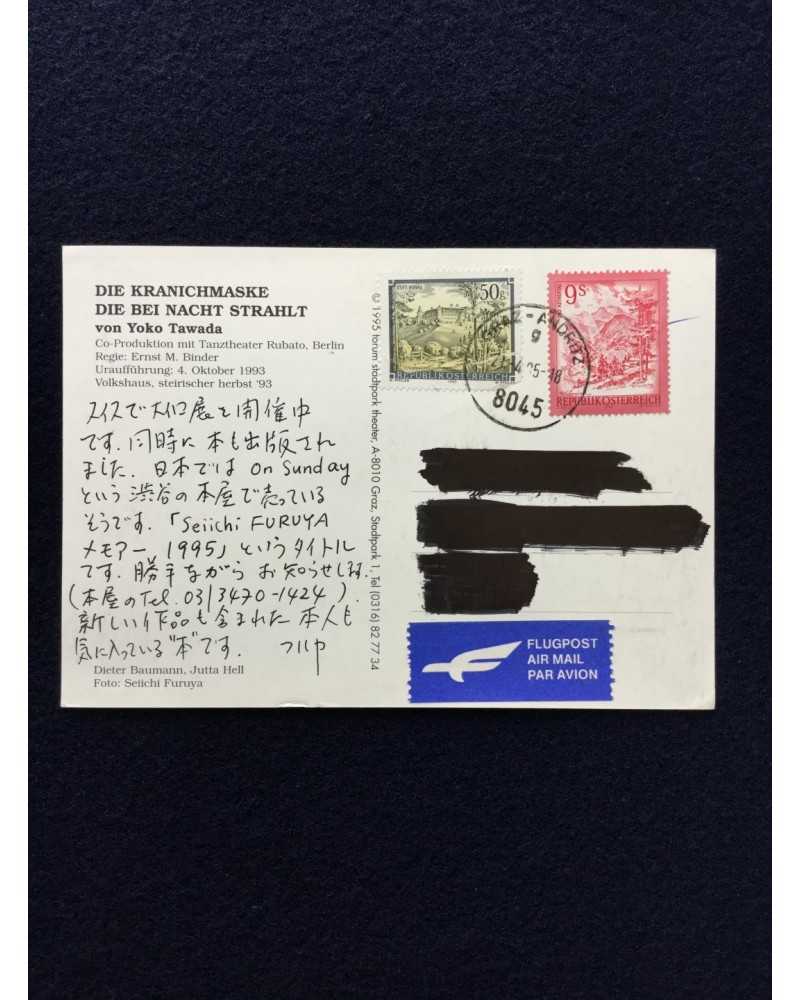 DIE KRANICHMASKE
DIE BEI NACHT STRAHLT
von Yoko Tawada
Co-Produktion mit Tanztheater Rubato, Berlin
Regie: Ernst M. Binder
Uraufführung: 4. Oktober 1993
Volkshaus, steirischer herbst '93
スイスで大回展を開催中
です。同時に本も出版され
ました。日本では on Sunday
という渋谷の本屋で売っている
そうです。「Seiichi FURUYA
メモアー, 1995」というタイトル
です。勝手ながらお知らせします。
(本屋のTel. 03/3470-1424).
新しい作品も含まれた本人も
気に入っている"本"です。
Dieter Baumann, Jutta Hell
Foto: Seiichi Furuya
© 1995 forum stadtpark theater, A-8010 Graz, Stadtpark 1, Tel (0316) 82 77 34
50g
REPUBLIK ÖSTERREICH
9s
REPUBLIK ÖSTERREICH
GRAZ-ANDRITZ
g
8045
FLUGPOST
AIR MAIL
PAR AVION